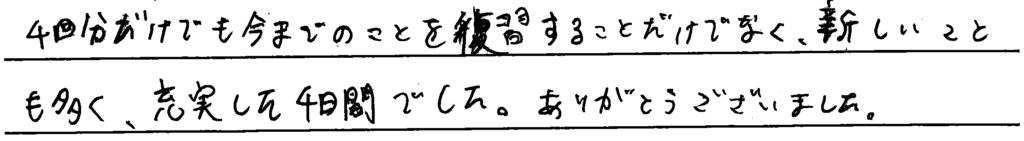 4回分だけでも今までのことを復習することだけでなく、新しいこと
も多く、充実した4日間でした。ありがとうございました。